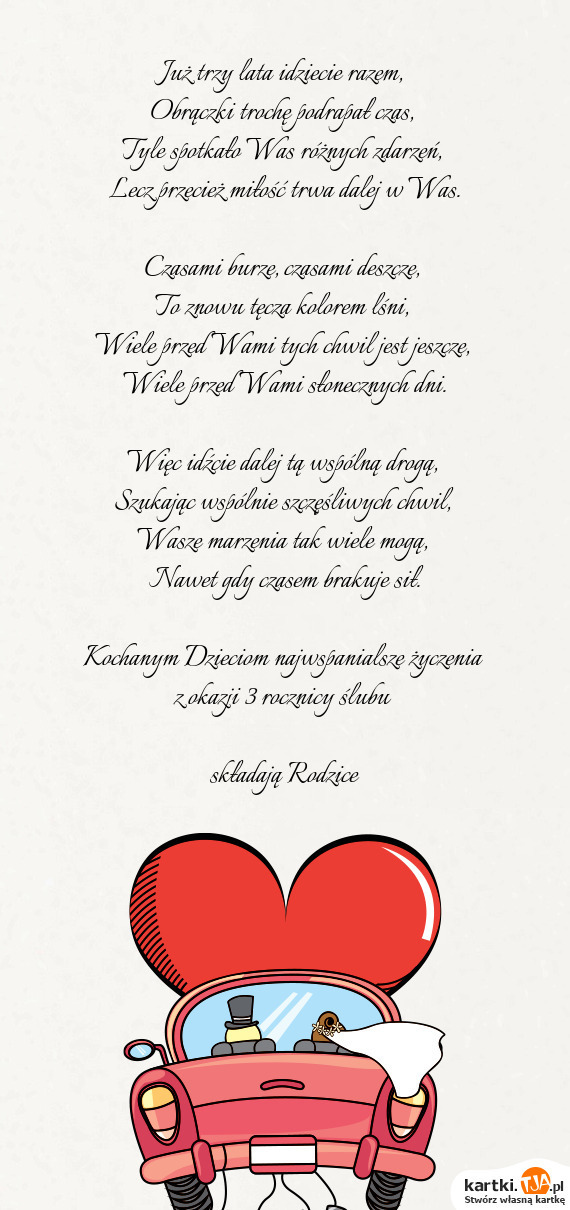 Już trzy lata idziecie razem,
Obrączki trochę podrapał czas,
Tyle spotkało Was różnych zdarzeń,
Lecz przecież miłość trwa dalej w Was.
Czasami burze, czasami deszcze,
To znowu tęcza kolorem lśni,
Wiele przed Wami tych chwil jest jeszcze,
Wiele przed Wami słonecznych dni.
Więc idźcie dalej tą wspólną drogą,
Szukając wspólnie szczęśliwych chwil,
Wasze marzenia tak wiele mogą,
Nawet gdy czasem brakuje sił.
Kochanym Dzieciom najwspanialsze życzenia
z okazji 3 rocznicy ślubu
składają Rodzice
kartki.TJA.pl
Stwórz własną kartkę